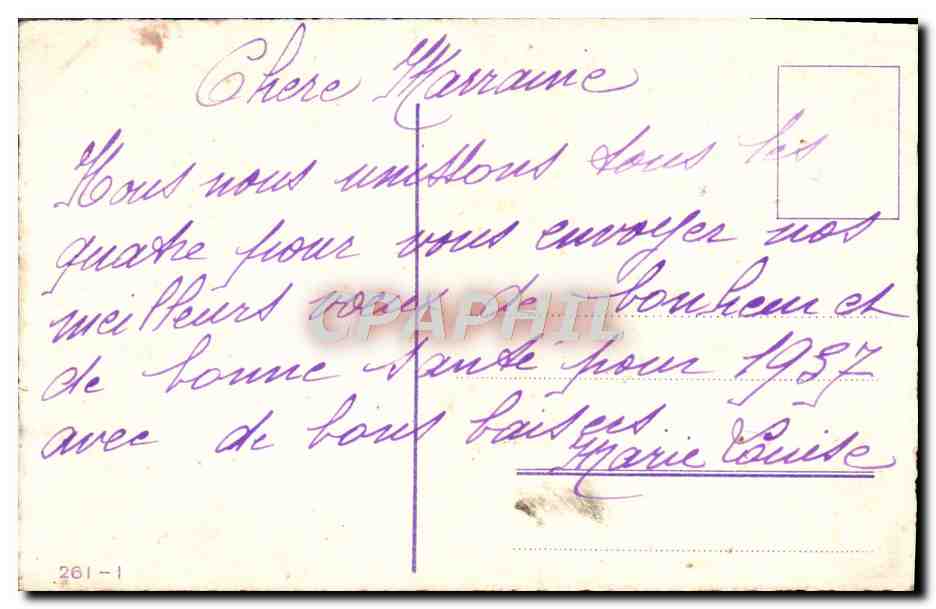 Chere Marraine
Nous nous unissons tous les
quatre pour vous envoyer nos
meilleurs voeux de bonheur et
de bonne sante pour 1937
avec de bons baisers
Marie Louise
CPAPHIL
261-1